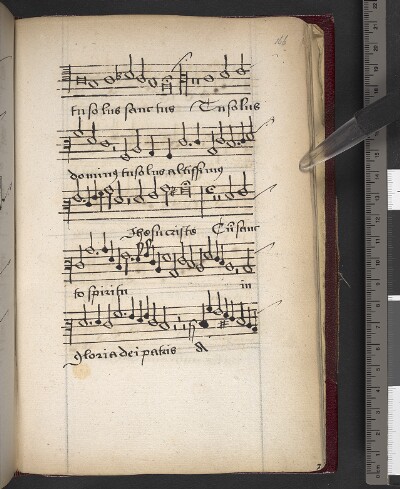 tu solus sanctus Tu solus
dominꝰ tu solus altissimꝰ
Jhesu criste Cū sanc
to spiritu in
gloria dei patris A